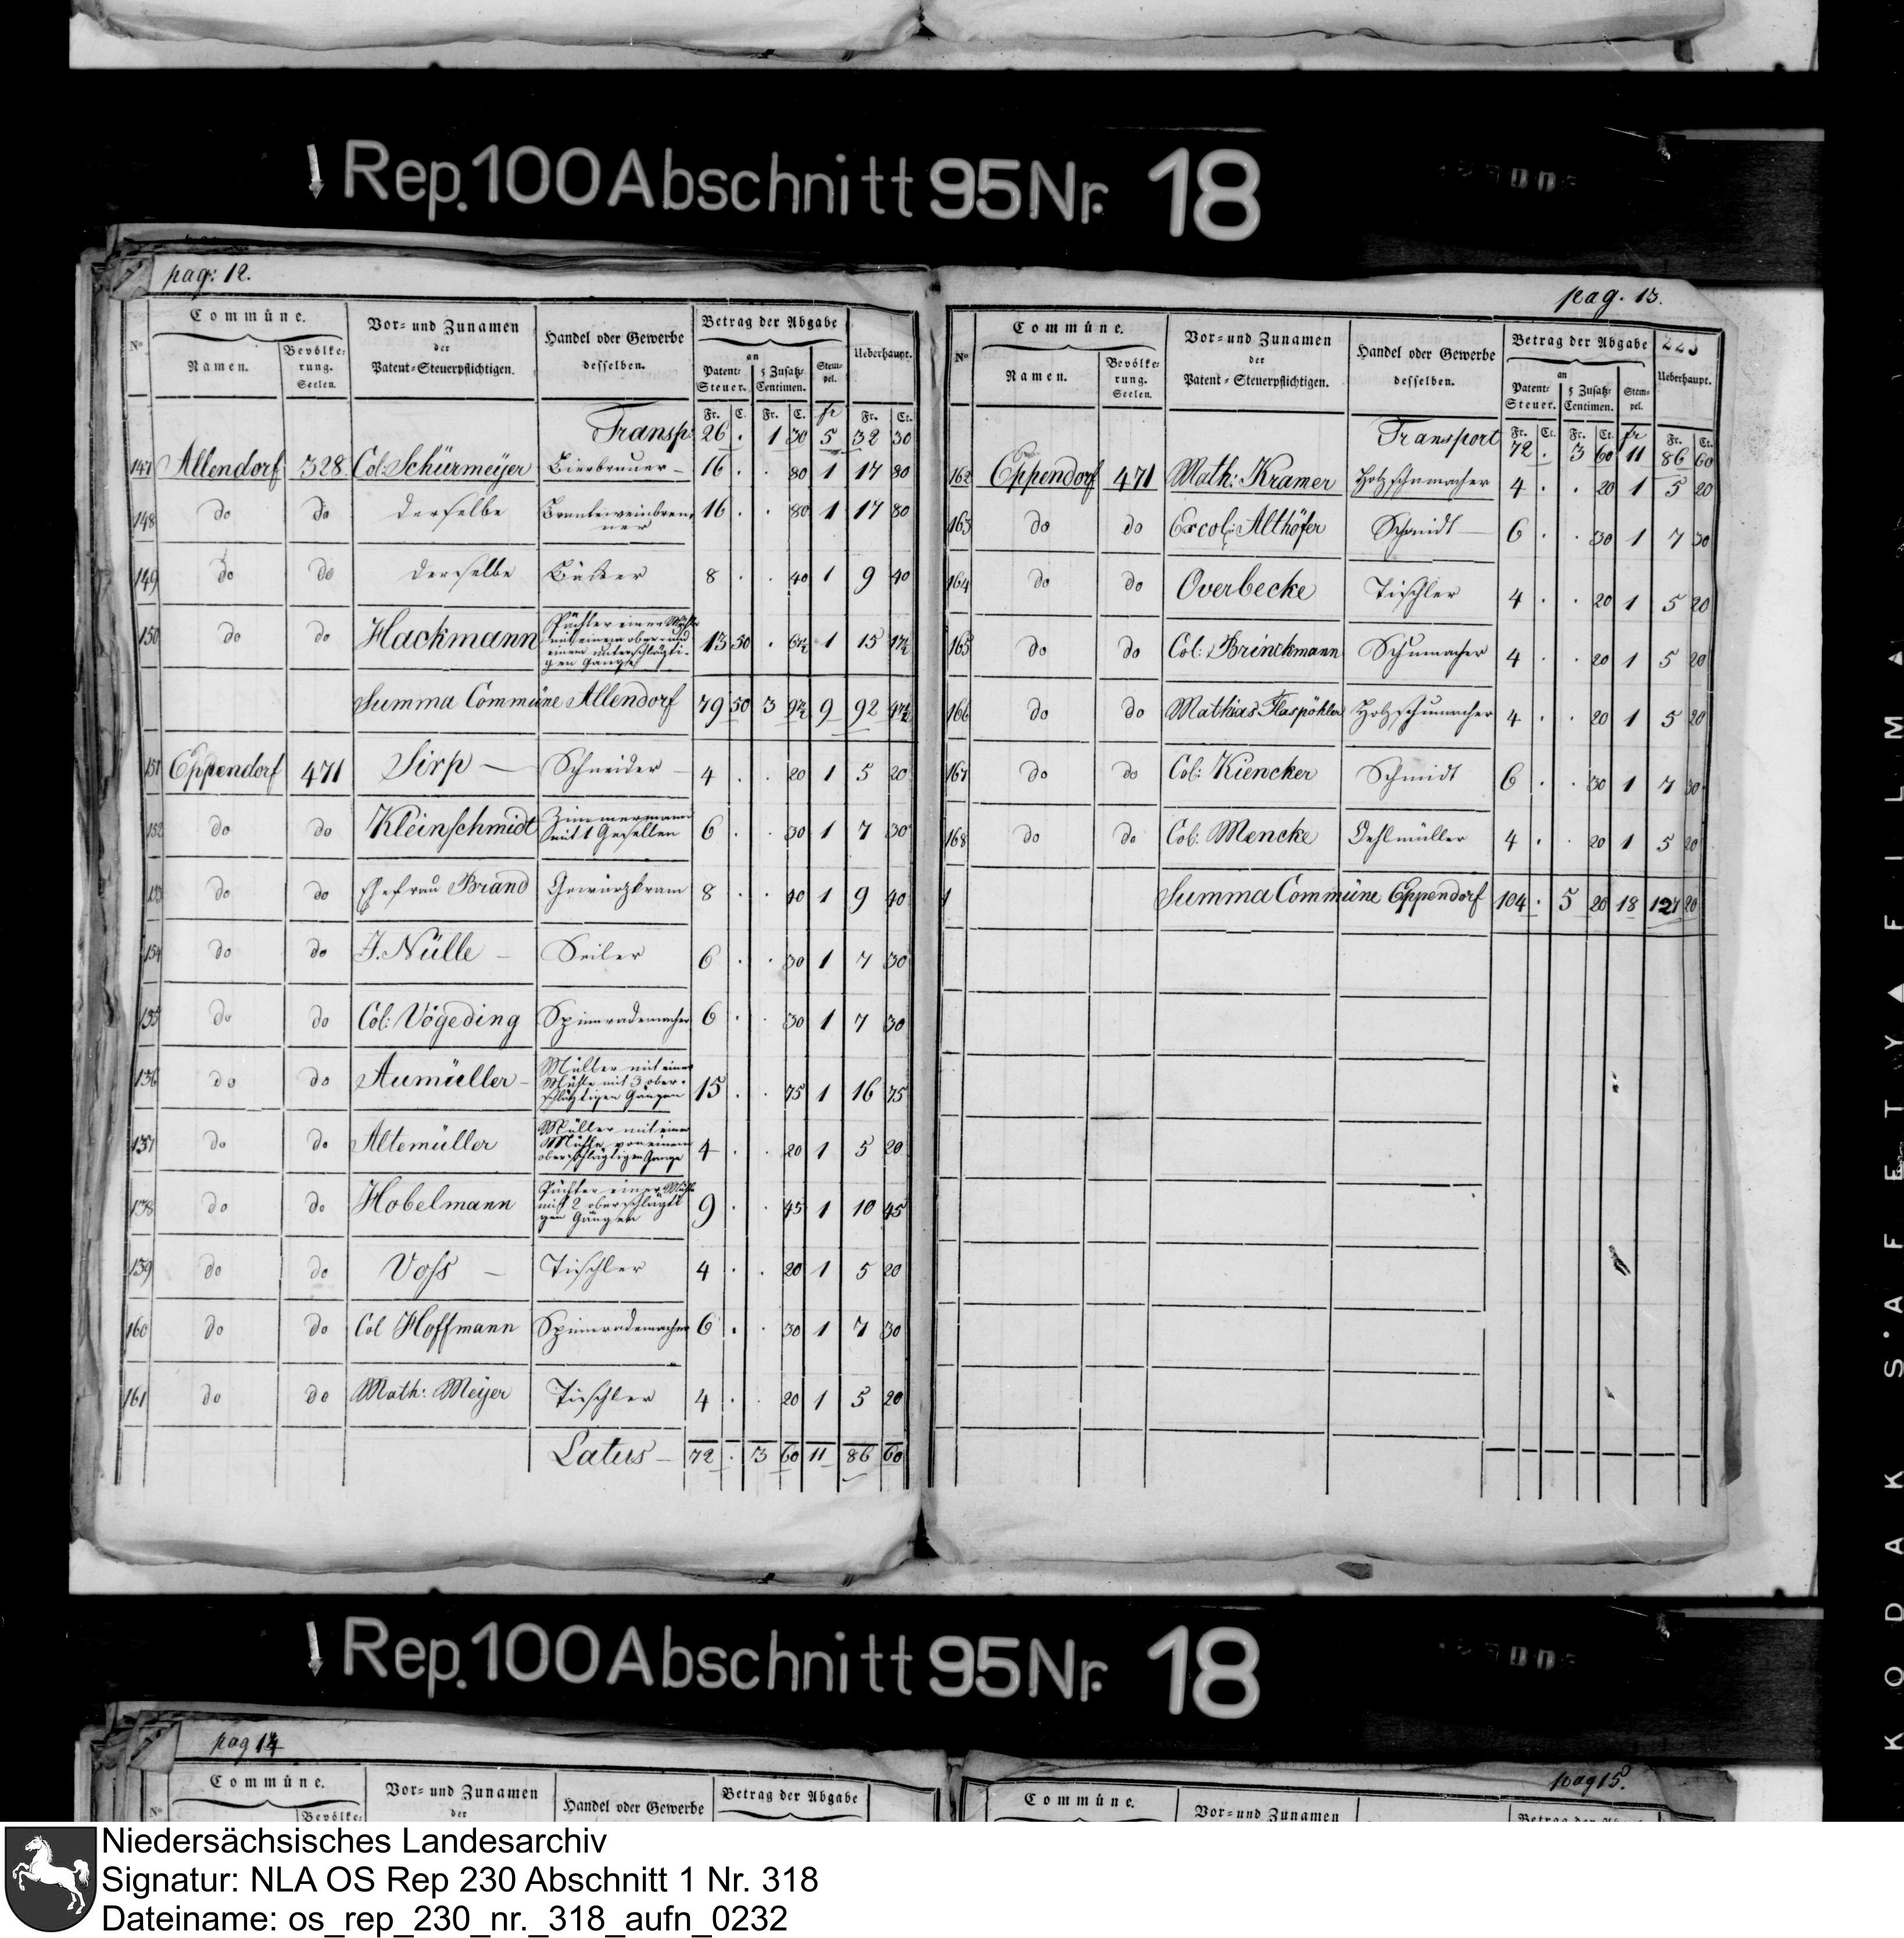 Rep. 100 Abschnitt 95 Nr. 18
pag: 12.
No
Commüne.
Namen.
Bevölke:
rung.
Seelen.
Vor= und Zunamen
der
Patent=Steuerpflichtigen.
Handel oder Gewerbe
desselben.
Betrag der Abgabe
an
Patent=
Steuer.
5 Zusatz=
Centimen.
Stem=
pel.
Ueberhaupt.
Fr. C. Fr. C. fr Fr. Ct.
Transp: 26 . 1 30 5 32 30
147 Allendorf 328 Col: Schürmeÿer Bierbrauer 16 . . 80 1 17 80
148 do do derselbe Branteweinbren, 16 . . 80 1 17 80
ner
149 do do derselbe Bäcker 8 . . 40 1 9 40
150 do do Hackmann Pächter einer Mühle 13 50 . 67½ 1 15 17½
mit einem ober= und
einem unterschlägti=
gen Gange
Summa Commüne Allendorf 79 50 3 97½ 9 92 47½
151 Eppendorf 471 Sirp Schneider 4 . . 20 1 5 20
152 do do Kleinschmidt Zimmermann 6 . . 30 1 7 30
mit 1 Gesellen
153 do do Ehefrau Brand Gewürzkram 8 . . 40 1 9 40
154 do do J. Nülle Seiler 6 . . 30 1 7 30
155 do do Col: Vögeding Spinnrademacher 6 . . 30 1 7 30
156 do do Aumüller Müller mit einer 15 . . 75 1 16 75
Mühle mit 3 ober=
schlägtigen Gängen
157 do do Altemüller Müller mit einer 4 . . 20 1 5 20
Mühle von einem
oberschlägtigen Gange
158 do do Hobelmann Pächter einer Mühle 9 . . 45 1 10 45
mit 2 oberschlägti
gen Gängen
159 do do Voss Tischler 4 . . 20 1 5 20
160 do do Col Hoffmann Spinnrademacher 6 . . 30 1 7 30
161 do do Math: Meijer Tischler 4 . . 20 1 5 20
Latus 72 . 3 60 11 86 60
pag. 13.
223
No
Commüne.
Namen.
Bevölke=
rung.
Seelen.
Vor= und Zunamen
der
Patent=Steuerpflichtigen.
Handel oder Gewerbe
desselben.
Betrag der Abgabe
an
Patent=
Steuer.
5 Zusatz=
Centimen.
Stem=
pel.
Ueberhaupt.
Fr. Ct. Fr. Ct. fr Fr. Ct.
Transport 72 . 3 60 11 86 60
162 Eppendorf 471 Math: Kramer Holzschumacher 4 . . 20 1 5 20
163 do do Excol: Althöfer Schmidt 6 . . 30 1 7 30
164 do do Overbecke Tischler 4 . . 20 1 5 20
165 do do Col: Brinckmann Schumacher 4 . . 20 1 5 20
166 do do Mathias Flaspöhler Holzschumacher 4 . . 20 1 5 20
167 do do Col: Kiencker Schmidt 6 . . 30 1 7 30
168 do do Col: Mencke Oehlmüller 4 . . 20 1 5 20
Summa Commüne Eppendorf 104 . 5 20 18 127 20
KODAK S·A·F·E·T·Y FILM
Rep. 100 Abschnitt 95 Nr. 18
pag 14
No
Commüne.
Bevölke:
Vor= und Zunamen
der
Handel oder Gewerbe
Betrag der Abgabe
pag 15.
Commüne.
Vor= und Zunamen
Niedersächsisches Landesarchiv
Signatur: NLA OS Rep 230 Abschnitt 1 Nr. 318
Dateiname: os_rep_230_nr._318_aufn_0232